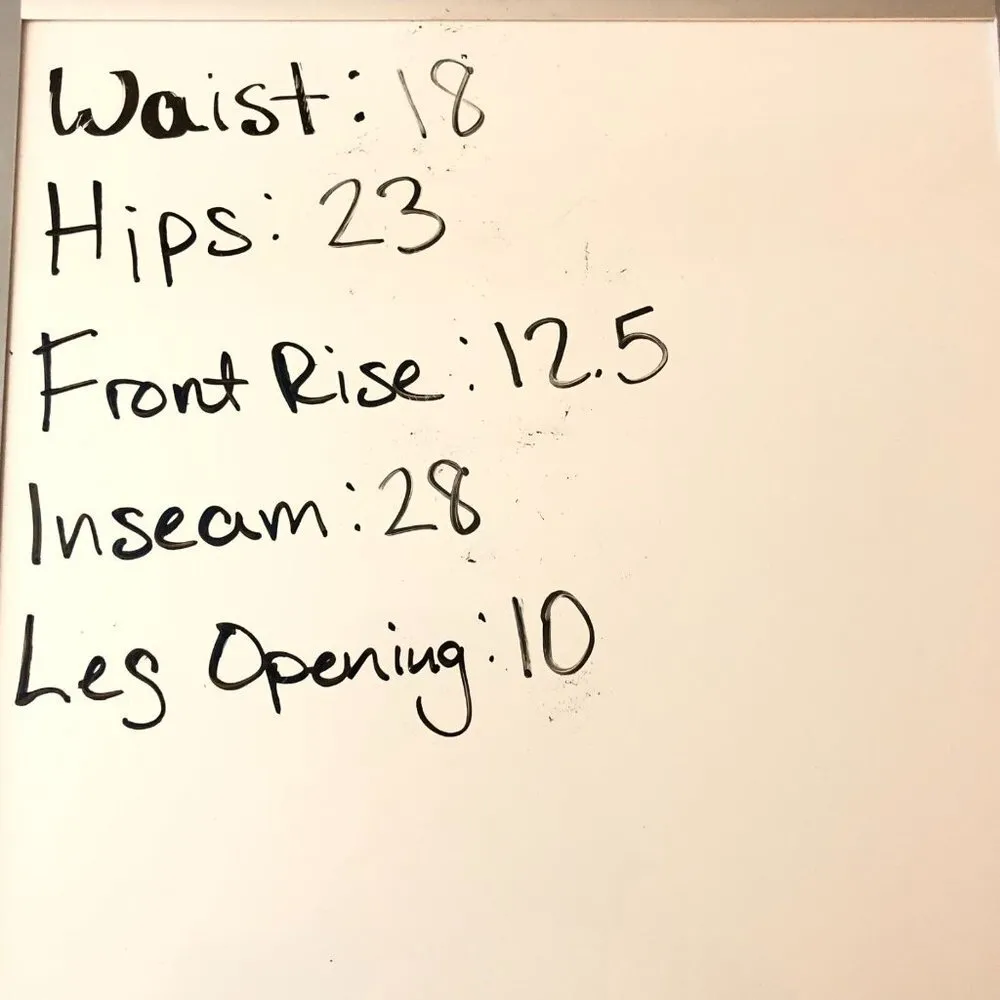 Waist: 18
Hips: 23
Front Rise: 12.5
Inseam: 28
Leg Opening: 10